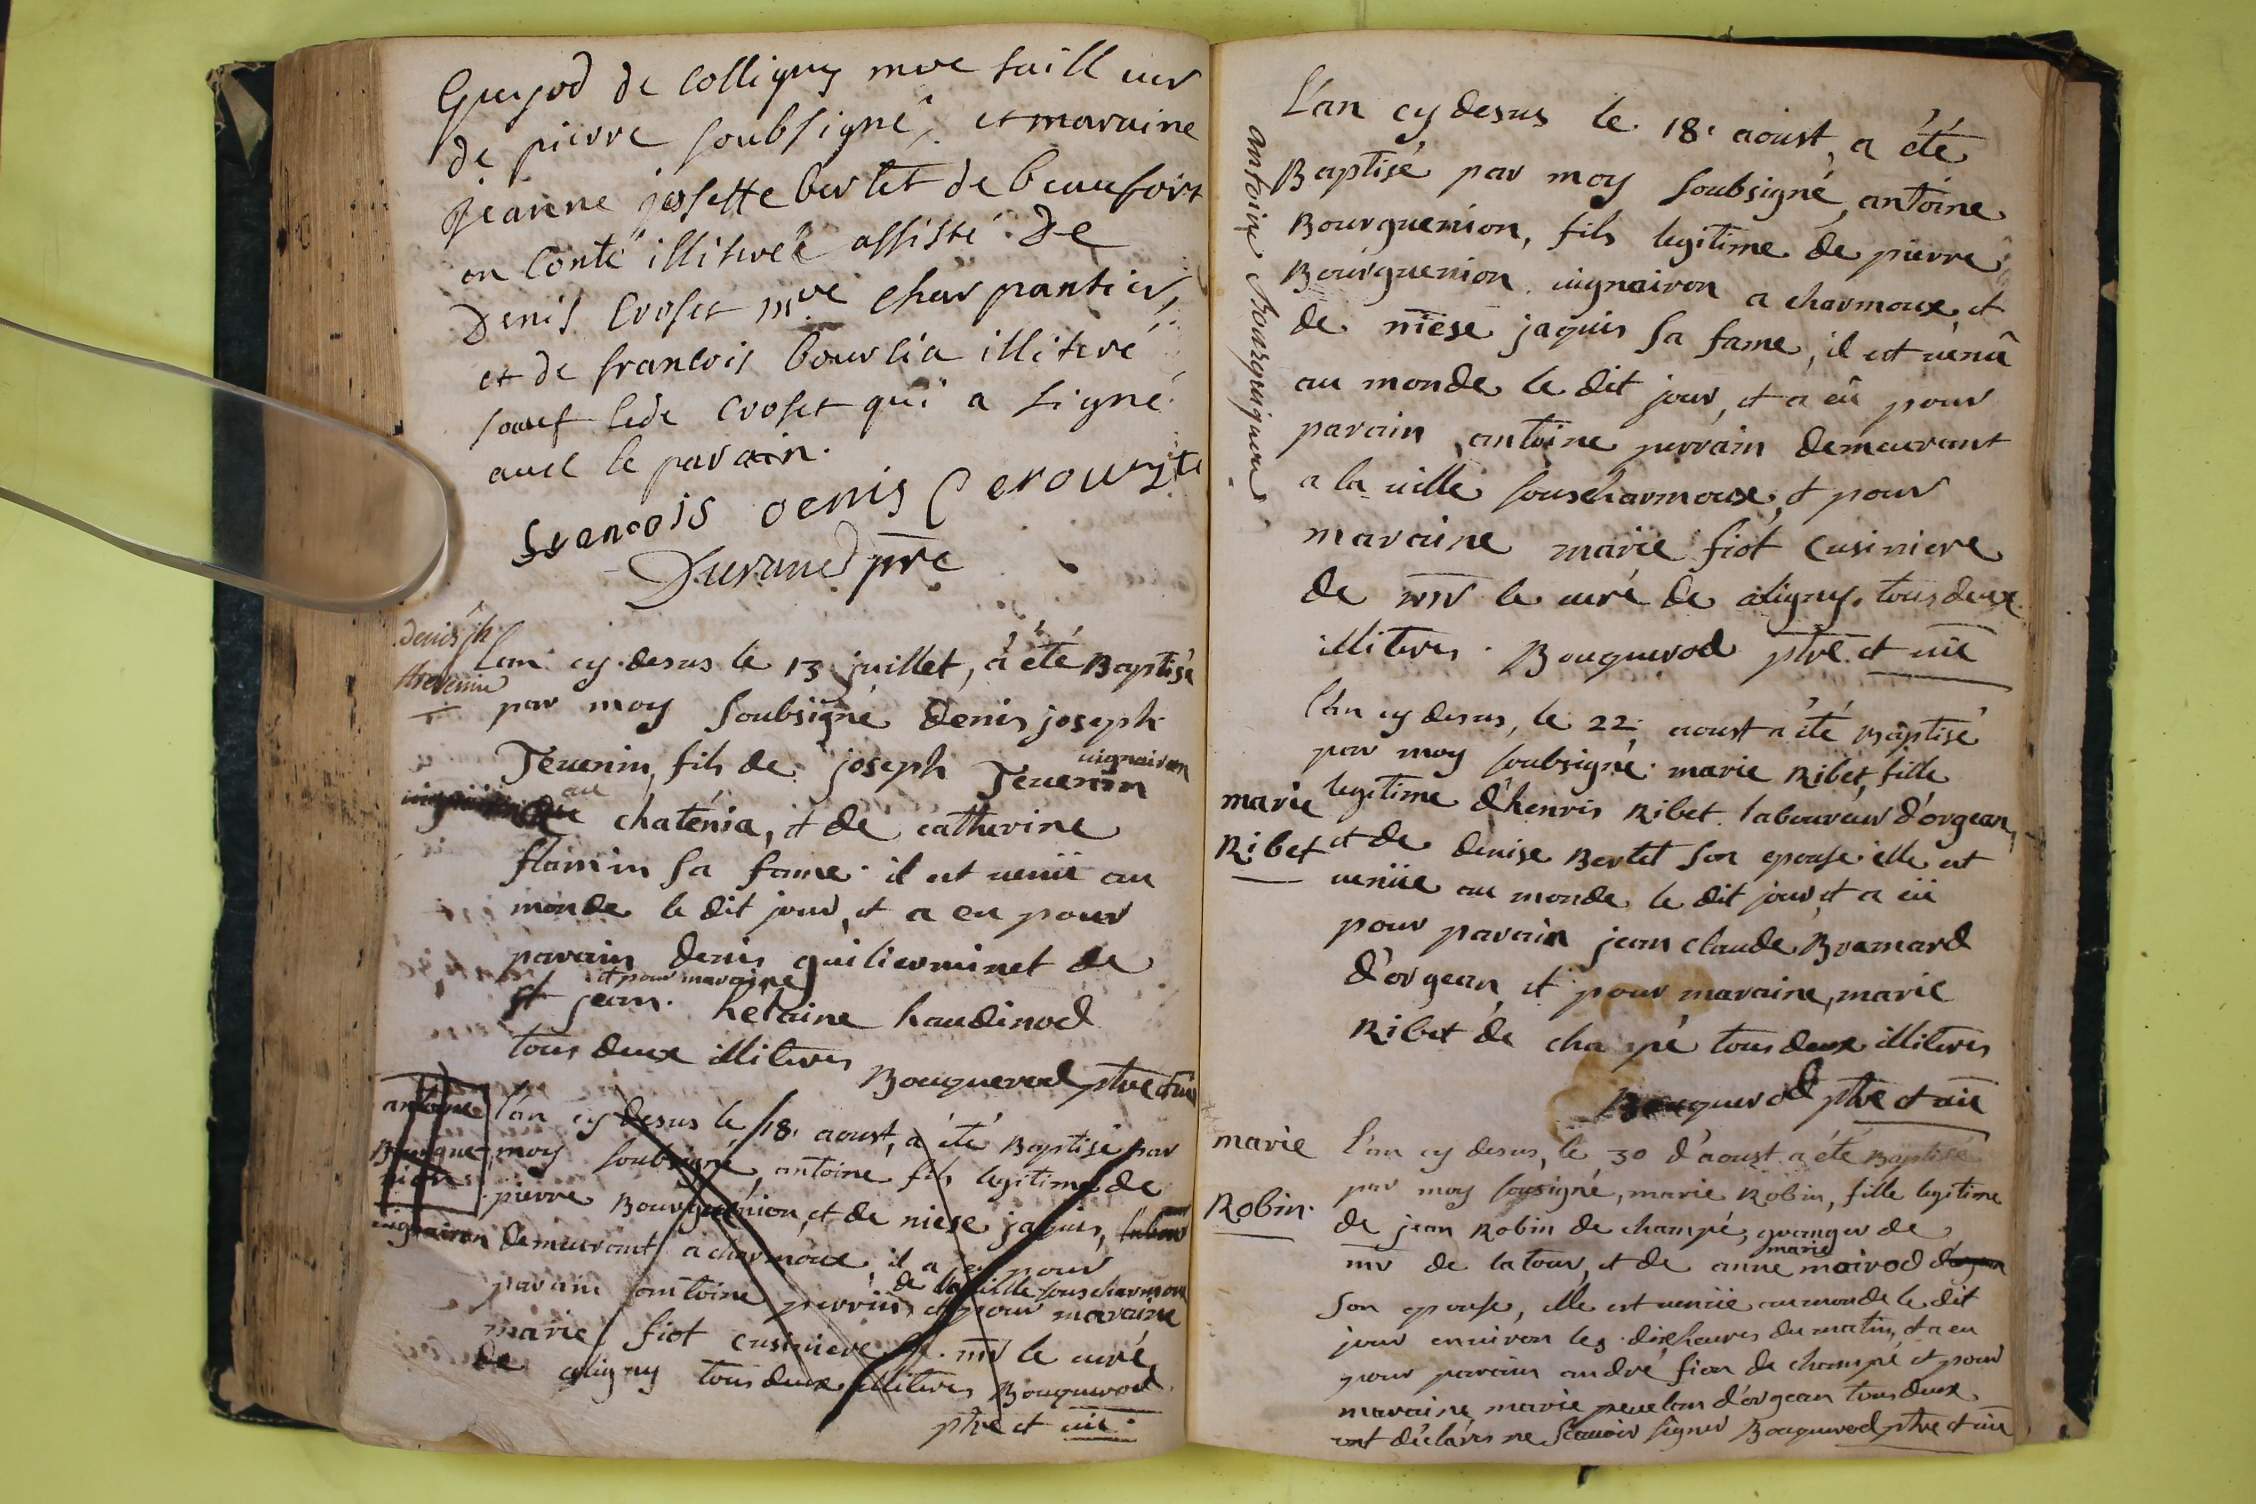 Guyod de Colligny mre taill eur
de pierre soubsigné, et maraine
jeanne josette bertet de beaufort
en Conté illiterée assisté De
Denis Croset mre Charpantier,
et de francois bourlia illiteré
sauf ledt Croset qui a signé
avec le parain.
francois denis Cerouzte
Durand pre
denis jh
thevenin
lan cy desus le 13 juillet, a été Baptisé
par moy soubsigné denis joseph
Tevenin, fils de joseph Tevenin
vignairon
au chaténia, et de catherine
flamin sa fame il est venü au
monde le dit jour, et a eu pour
parain denis guilierminet de
st jean. et pour maraine hélaine haudinod
tous deux illiteres
Bouquerod ptre et vic
antoine
Bourgue
nion
l'an cy desus le 18 aoust, a été Baptisé par
moy soubsigné, antoine fils legitime de
pierre Bourguenion, et de niese jaquis, labour
vignairon demeurant a charmoux, il a eu pour
parain antoine perrin, de la ville sous charmoux et pour maraine
marie fiot cusiniere de mr le curé
de aligny tous deux illiteres Bouquerod
ptre et vic
antoine bourguignon
L'an cy desus le 18 aoust, a été
Baptisé par moy soubsigné, antoine
Bourguenion, fils legitime de pierre
Bourguenion vignairon a charmoux, et
de niese jaquis sa fame, il est venû
au monde le dit jour, et a eû pour
parain antoine perrain demeurant
a la ville souscharmoux, et pour
maraine marie fiot cusiniere
de mr le curé de aligny, tous deux
illiteres. Bouquerod ptre et vic
marie
Ribet
l'an cy desus, le 22 aoust a été Baptisé
par moy soubsigné marie Ribet, fille
legitime d'henris Ribet laboureur d'orgean,
et de denise Bertet son epouse elle est
veniie au monde le dit jour, et a eü
pour parain jean claude Bramard
d'orgean, et pour maraine, marie
Ribet de cha pé tous deux illiteres
Bouquerod ptre et vic
marie
Robin
l'an cy desus, le 30 d'aoust a été Baptisé
par moy sousigné, marie Robin, fille legitime
de jean Robin de champé, granger de
mr de latour, et de anne marie mairod
son epouse, elle est veniie au monde le dit
jour environ les dix heures du matin, et a eu
pour parain andré fion de champé et pour
maraine, marie d'orgean tous deux
ont déclarés ne scavoir signer Bouquerod ptre et vic